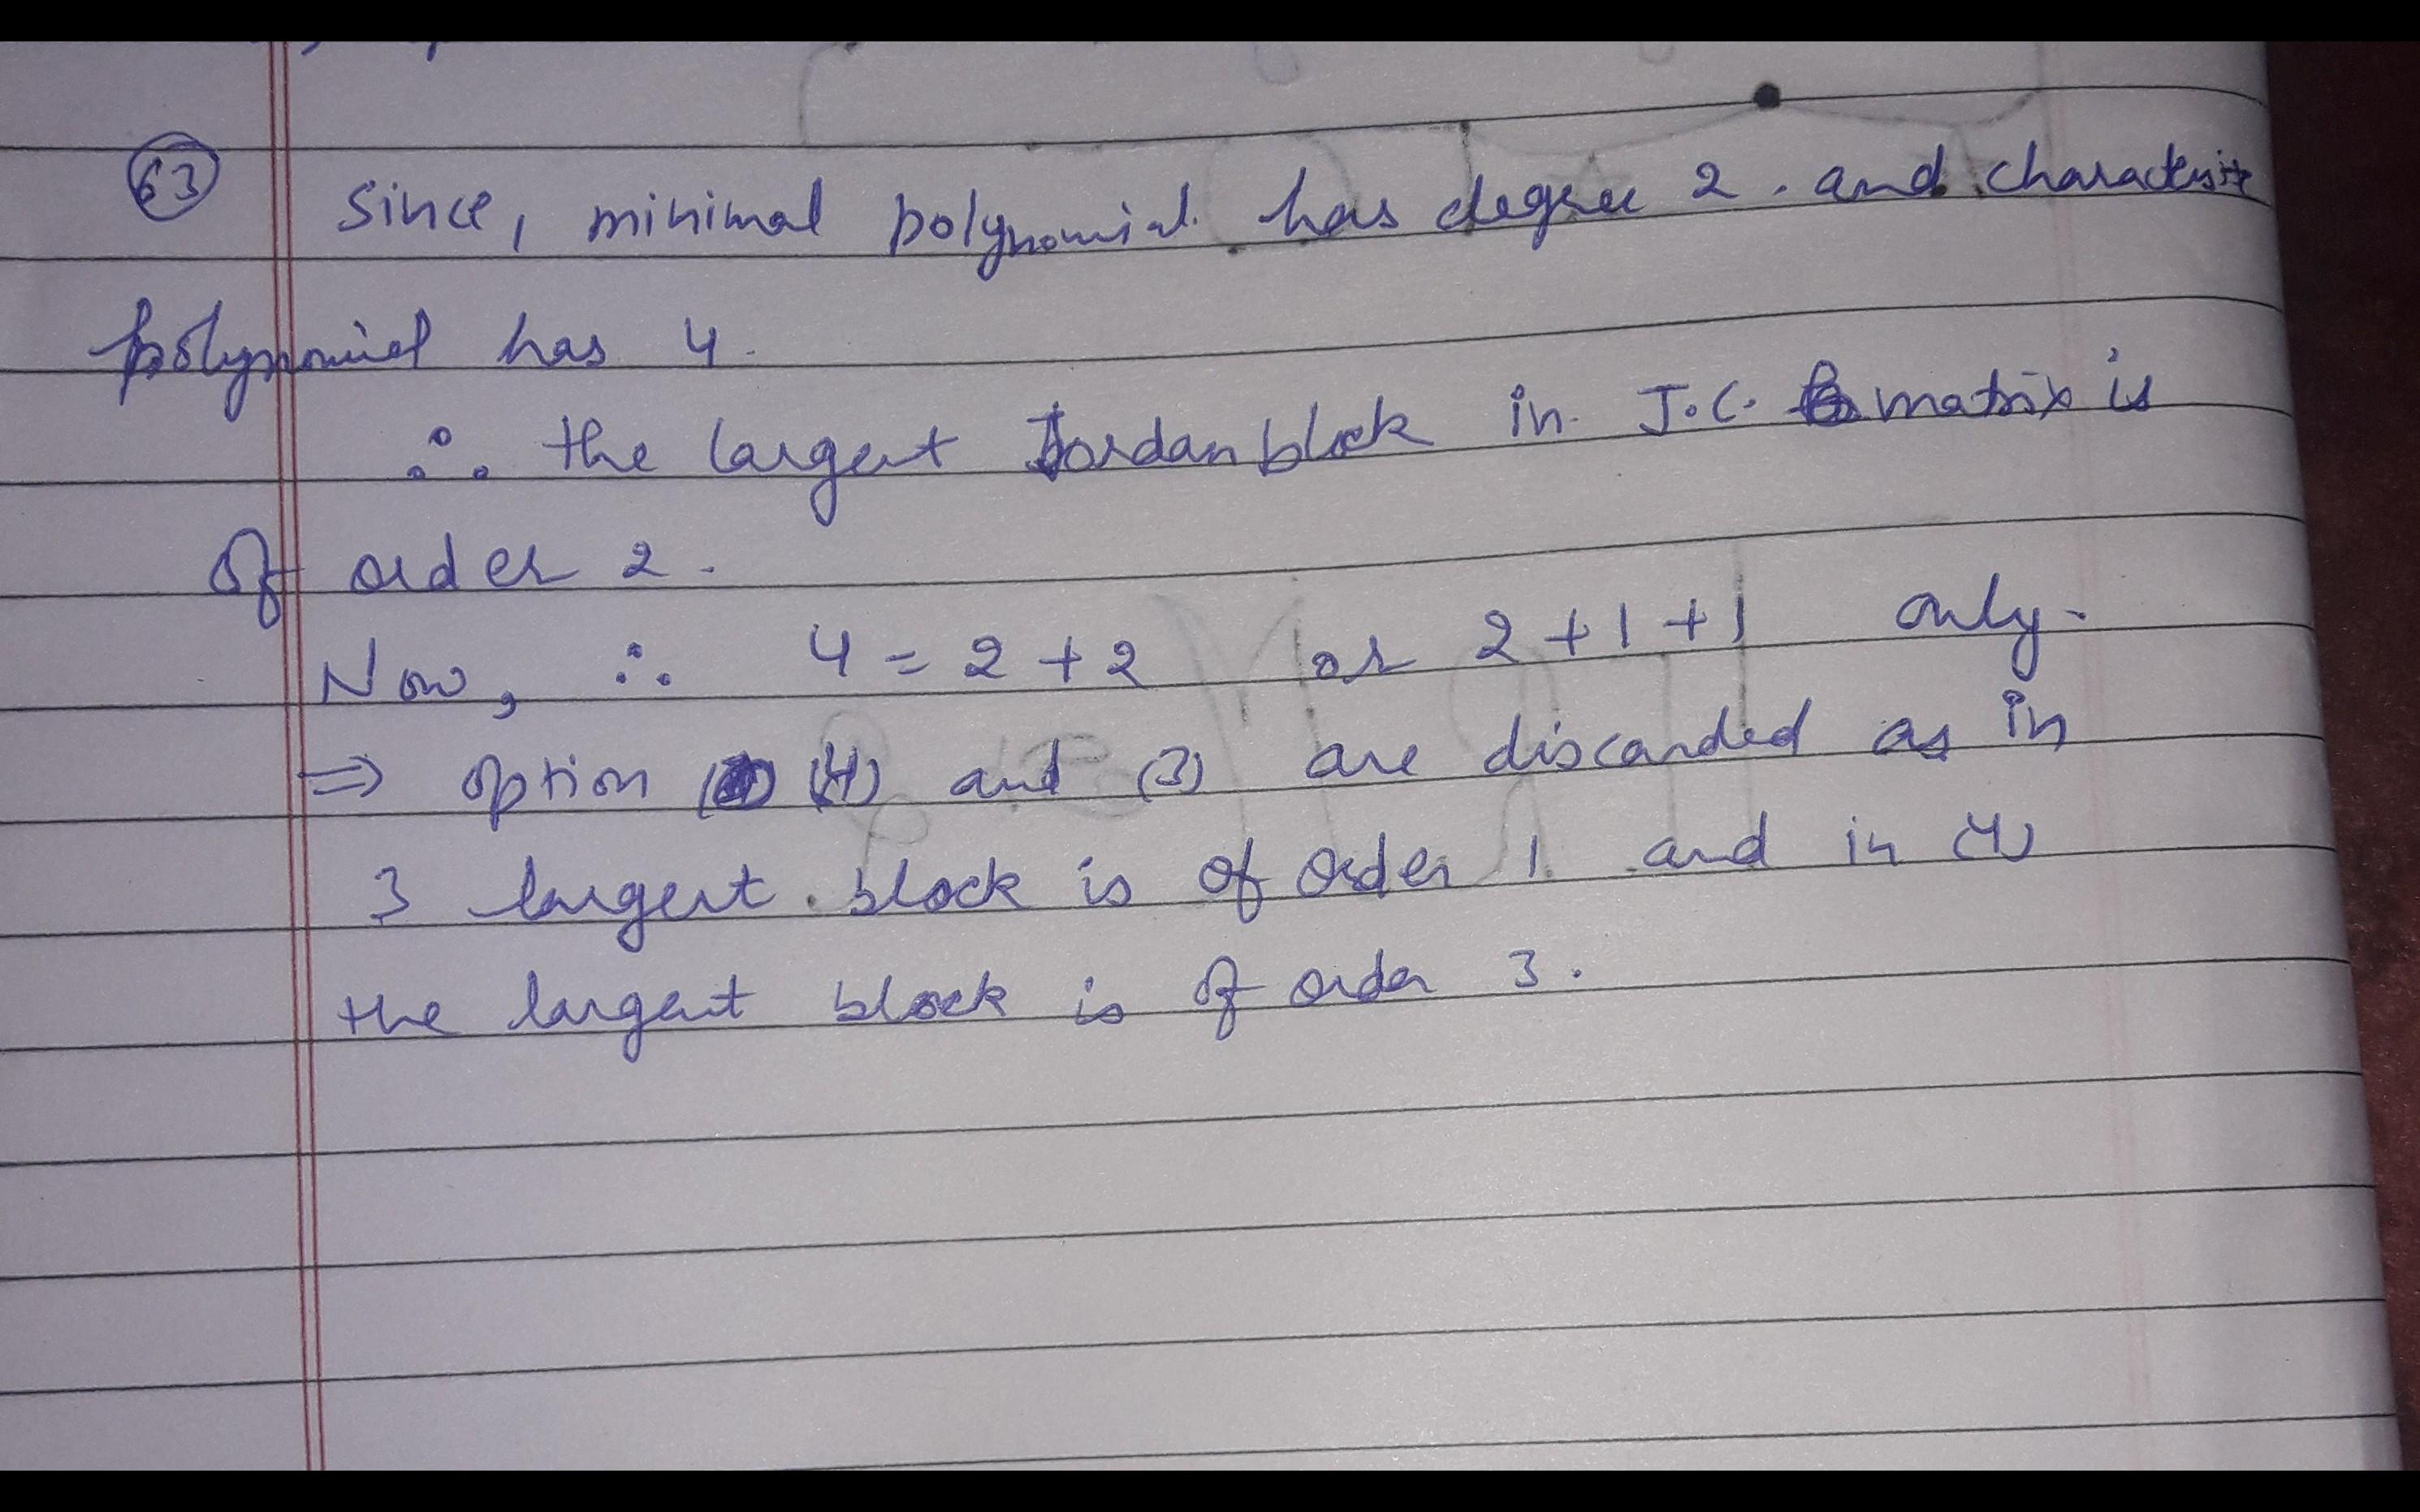 63 Since, minimal polynomial has degree 2. and characteristic
polynomial has 4.
∴ the largest Jordan block in J.C. matrix is
of order 2.
Now, ∴ 4 = 2 + 2 or 2 + 1 + 1 only.
⇒ option (4) and (3) are discarded as in
3 largest block is of order 1 and in (4)
the largest block is of order 3.